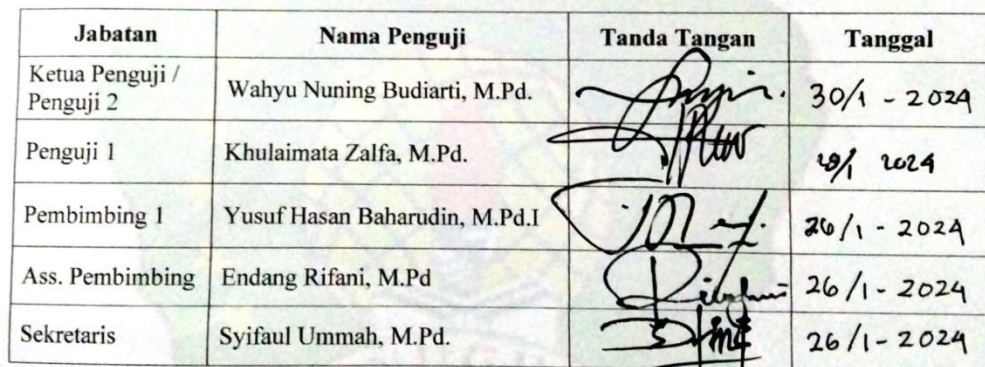 Jabatan Nama Penguji Tanda Tangan Tanggal
Ketua Penguji /
Penguji 2 Wahyu Nuning Budiarti, M.Pd. 30/1 - 2024
Penguji 1 Khulaimata Zalfa, M.Pd. 2024
Pembimbing 1 Yusuf Hasan Baharudin, M.Pd.I 26/1 - 2024
Ass. Pembimbing Endang Rifani, M.Pd 26/1 - 2024
Sekretaris Syifaul Ummah, M.Pd. 26/1 - 2024